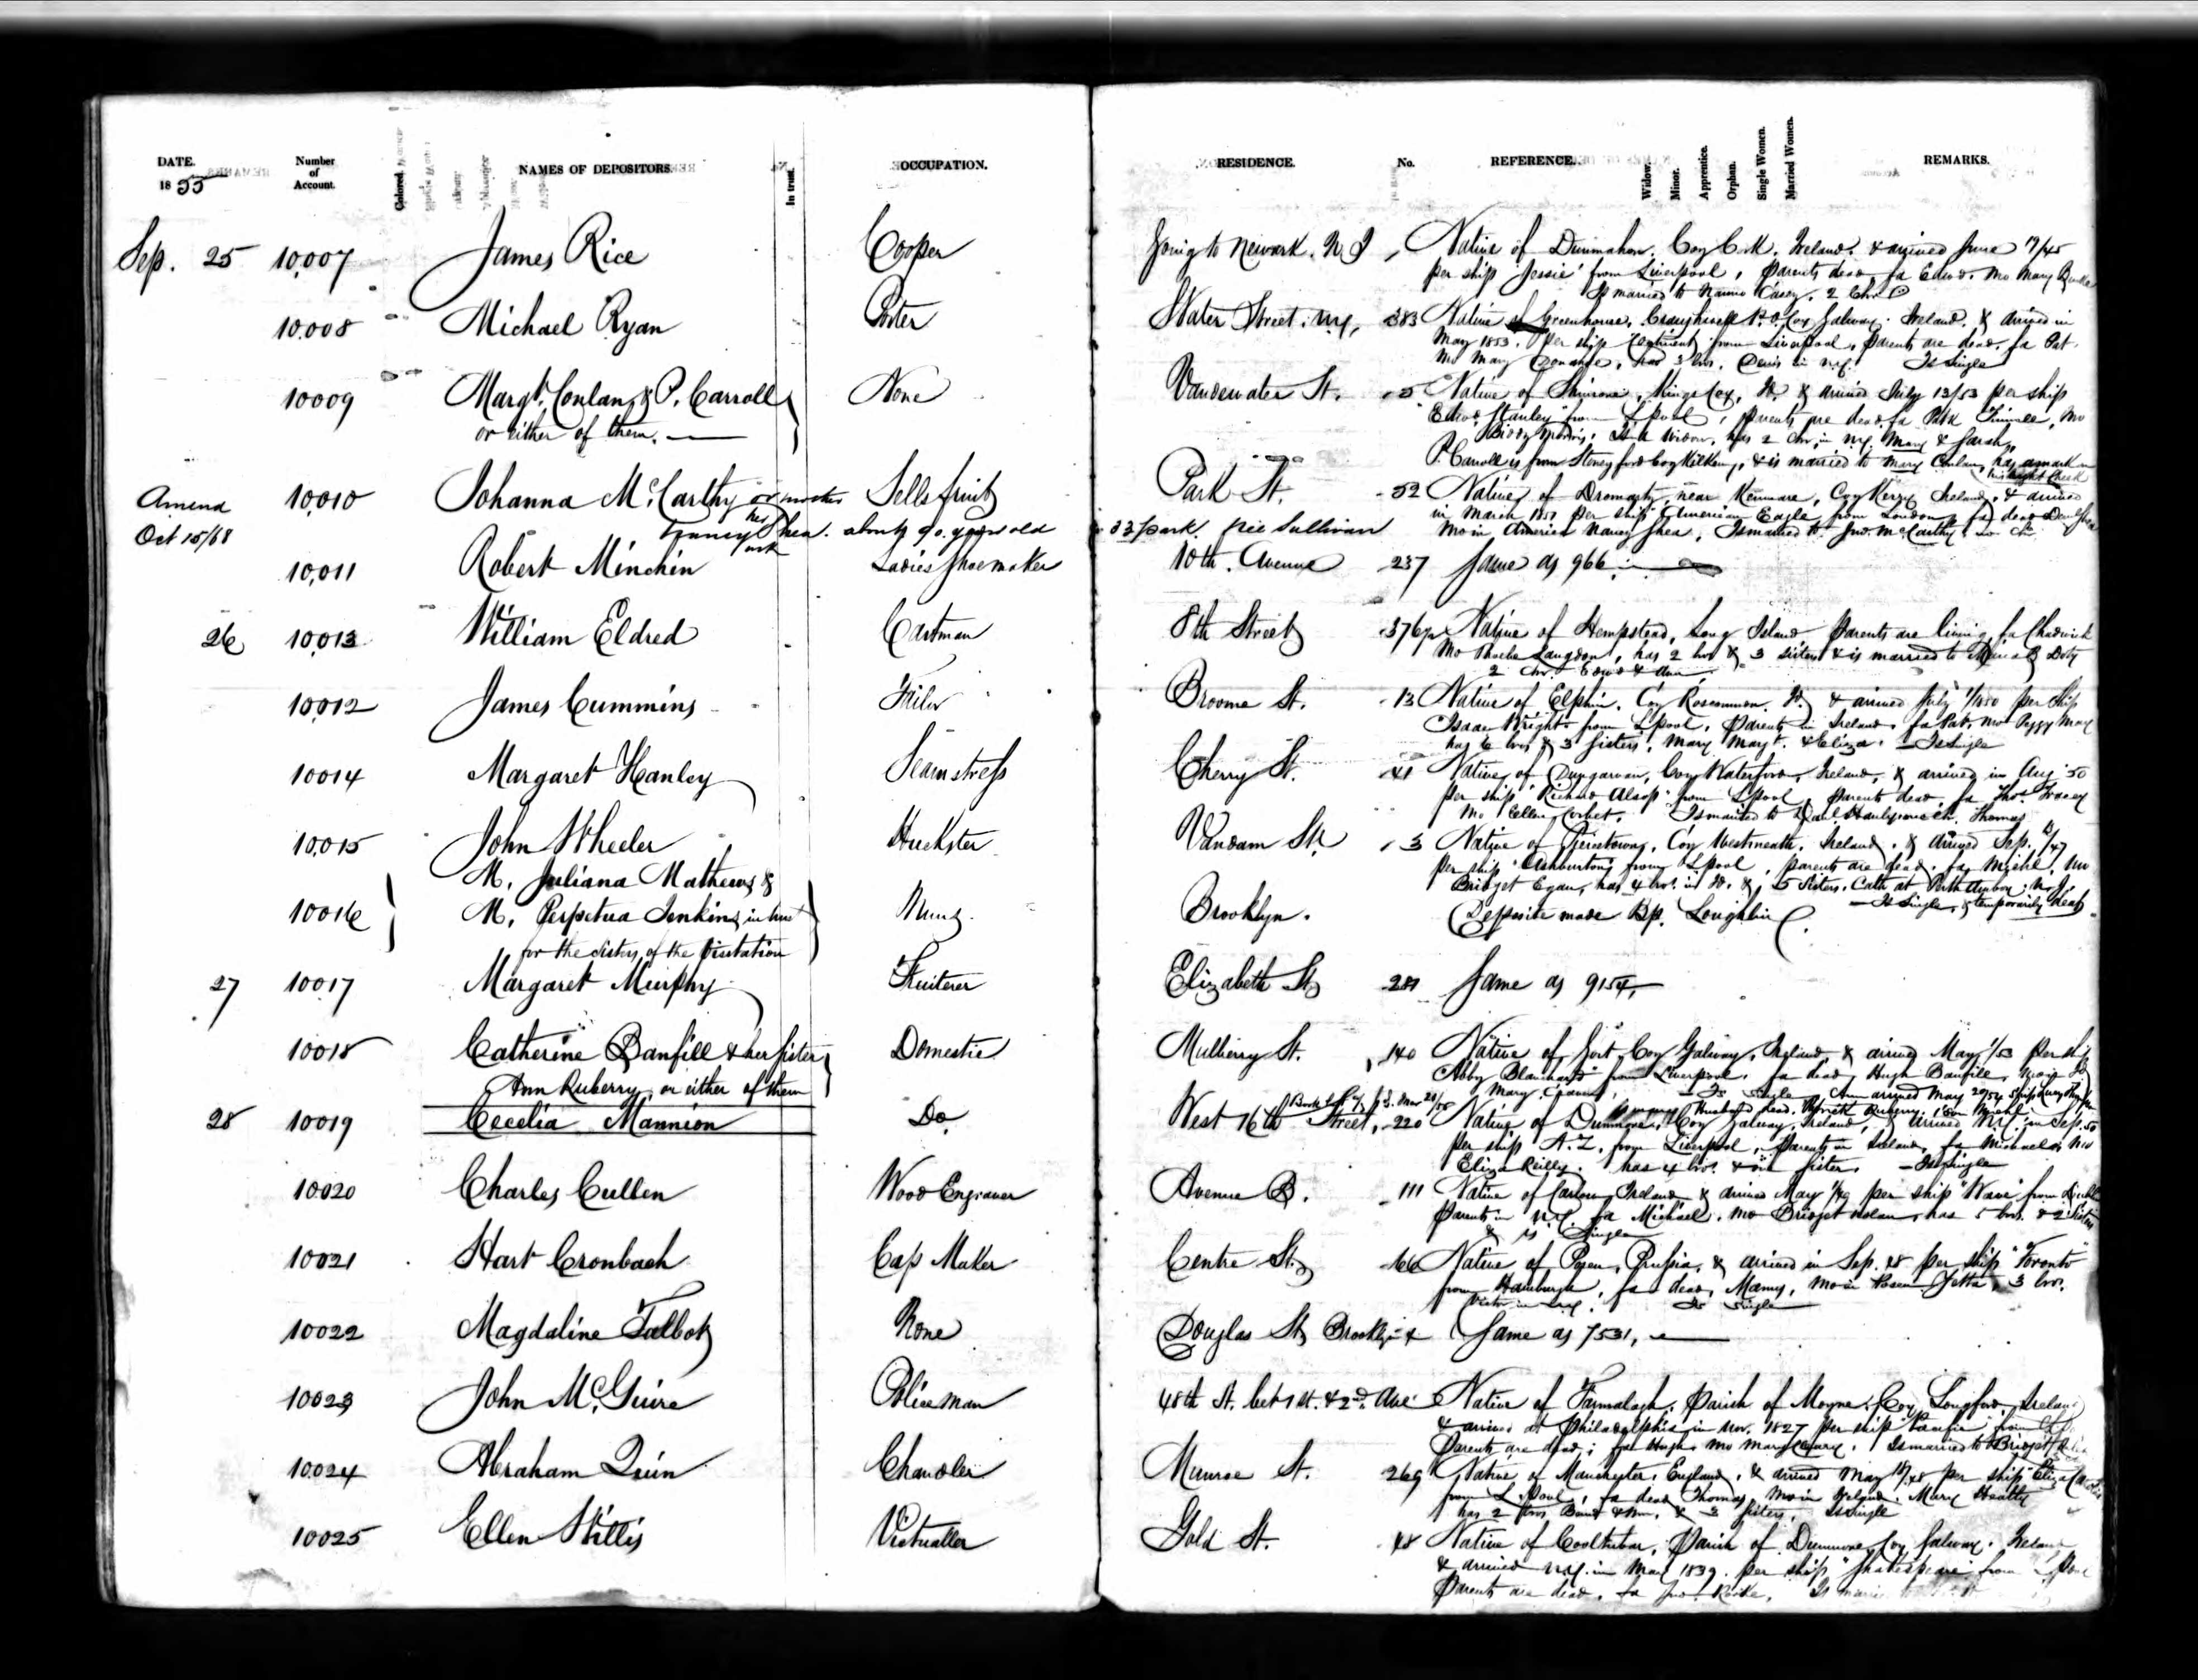 DATE. Number of Account. Colored. NAMES OF DEPOSITORS. In trust. OCCUPATION. RESIDENCE. No. REFERENCE. Widow. Minor. Apprentice. Orphan. Single Women. Married Women. REMARKS.
1855
Sep. 25 10,007 James Rice Cooper Going to Newark. N.J. Native of Coy Cork. Ireland. & arrived June 19/45
per ship 'Jessie' from Liverpool, Parents dead, fa Edwd. mo Mary
Is married to Casey. 2 Chr
10,008 Michael Ryan Porter Water Street. N.Y. 383 Native of Greenhouse, Craughwell P.O. Coy Galway. Ireland. & arrived in
May 1853. per ship from Liverpool, Parents are dead. fa Pat.
Mo Mary Donahue, has 3 bro. in N.Y. Is Single
10009 Margt. Conlan, & P. Carroll None Vandewater St. 5 Native of Kings Coy, Id. & arrived July 13/53 per ship
or either of them. "Edwd. Stanley" from L'pool, parents are dead. fa Patk Mo
Biddy Is a Widow, has 2 chr. in N.Y. Mary & Sarah,
P. Carroll is from Stoneyford Coy Kilkenny, & is married to Mary Conlan, has a mark on
his right cheek
Amend 10,010 Johanna McCarthy or mother Sells fruit Park St. 52 Native of near Kenmare, Coy Kerry Ireland. & arrived
Oct 15/68 Nancy Shea. her mark about 90. years old 33 park. nie Sullivan in March 1851 per ship "American Eagle" from London, fa dead
Mo in America Nancy Shea, Is married to Jno. McCarthy. no ch.
10,011 Robert Minchin Ladies Shoemaker 10th. Avenue 237 Same as 966
26 10,013 William Eldred Cartman 8th Street 376½ Native of Hempstead, Long Island Parents are living, fa Chadwick
Mo Phoebe Langdon, has 2 bro & 3 sisters & is married to Doty
2 chr. Edwd & Ann
10,012 James Cummins Tailor Broome St. 13 Native of Elphin. Coy Roscommon. Id. & arrived July 1/1850 per Ship
Isaac Wright from L'pool, Parents in Ireland. fa Pat. mo Peggy May
has 6 bros & 3 Sisters, Mary Margt. & Eliza. Is single
10014 Margaret Hanley Seamstress Cherry St. 41 Native of Dungarvan, Coy Waterford, Ireland, & arrived in Aug '50
per ship "Richard Alsop" from L'pool, Parents dead, fa Thos.
Mo Ellen Corbet. Is married to Danl. Hanley Thomas
10,015 John Wheeler Huckster Vandam St. 3 Native of Coy Westmeath. Ireland. & arrived Sep. /47
per ship "Ashburton" from L'pool, parents are dead. fa Michl. Mo
Bridget Egan, has 4 bro. in Id. & 5 Sisters. Cath at Perth Amboy. N.J.
Is Single, & temporarily deaf
10016 M. Juliana Mathews &
M. Perpetua Jenkins in trust Nuns. Brooklyn. Deposite made Bp. Loughlin
for the Sisters of the Visitation
27 10017 Margaret Murphy Fruiterer Elizabeth St. 281 Same as 9154,
10018 Catherine Banfill & her sister Domestic Mulberry St. 140 Native of Gort, Coy Galway, Ireland, & arrived May 1/53 per ship
Ann Ruberry, or either of them Abby Blanchard" from Liverpool. fa dead, Hugh Banfill, mo in Id
Mary Is Single Ann arrived May 20/54
husband dead. Patrick Ruberry. 1 son Michl.
28 10019 Cecelia Mannion Do. West 16th Street, 220 Native of Dunmore, Coy Galway, Ireland, & arrived N.Y. in Sep. 50
per ship A.Z, from Liverpool, Parents in Ireland, fa Michael, Mo
Eliza Reilly. has 4 bro. & one Sister. Is Single
10020 Charles Cullen Wood Engraver Avenue B. 111 Native of Carlow, Ireland & arrived May 1/49 per ship "Wave" from
Parents in N.Y. fa Michael. mo Bridget Nolan, has 5 bros. & 2 Sisters
& is Single
10021 Hart Cronbach Cap Maker Centre St. 66 Native of Posen, Prussia, & arrived in Sep. 48 per ship "Toronto"
from Hamburgh, fa dead, mo in Posen Jetta, 3 bro.
in N.Y. Is Single
10022 Magdaline Talbot None Douglas St. Brooklyn Same as 7531,
10023 John McGuire Policeman 48th St. bet 1st. & 2nd. Ave Native of Parish of Moyne. Coy Longford, Ireland
& arrived at Philadelphia in Nov. 1827 per ship "Pacific" from
Parents are dead; fa Hugh mo Mary Is married to Bridget
10024 Abraham Quin Chandler Munroe St. 269 Native of Manchester, England, & arrived May 18/48 per ship
from L'pool, fa dead Thomas, Mo in Mary Heally
has 2 bros & & 3 Sisters, Is single
10025 Ellen Willis Victualler Gold St. 48 Native of Parish of Dunmore Coy Galway. Ireland
& arrived N.Y. in May 1839. per ship "Shakespeare" from L'pool
Parents are dead. fa Jno.